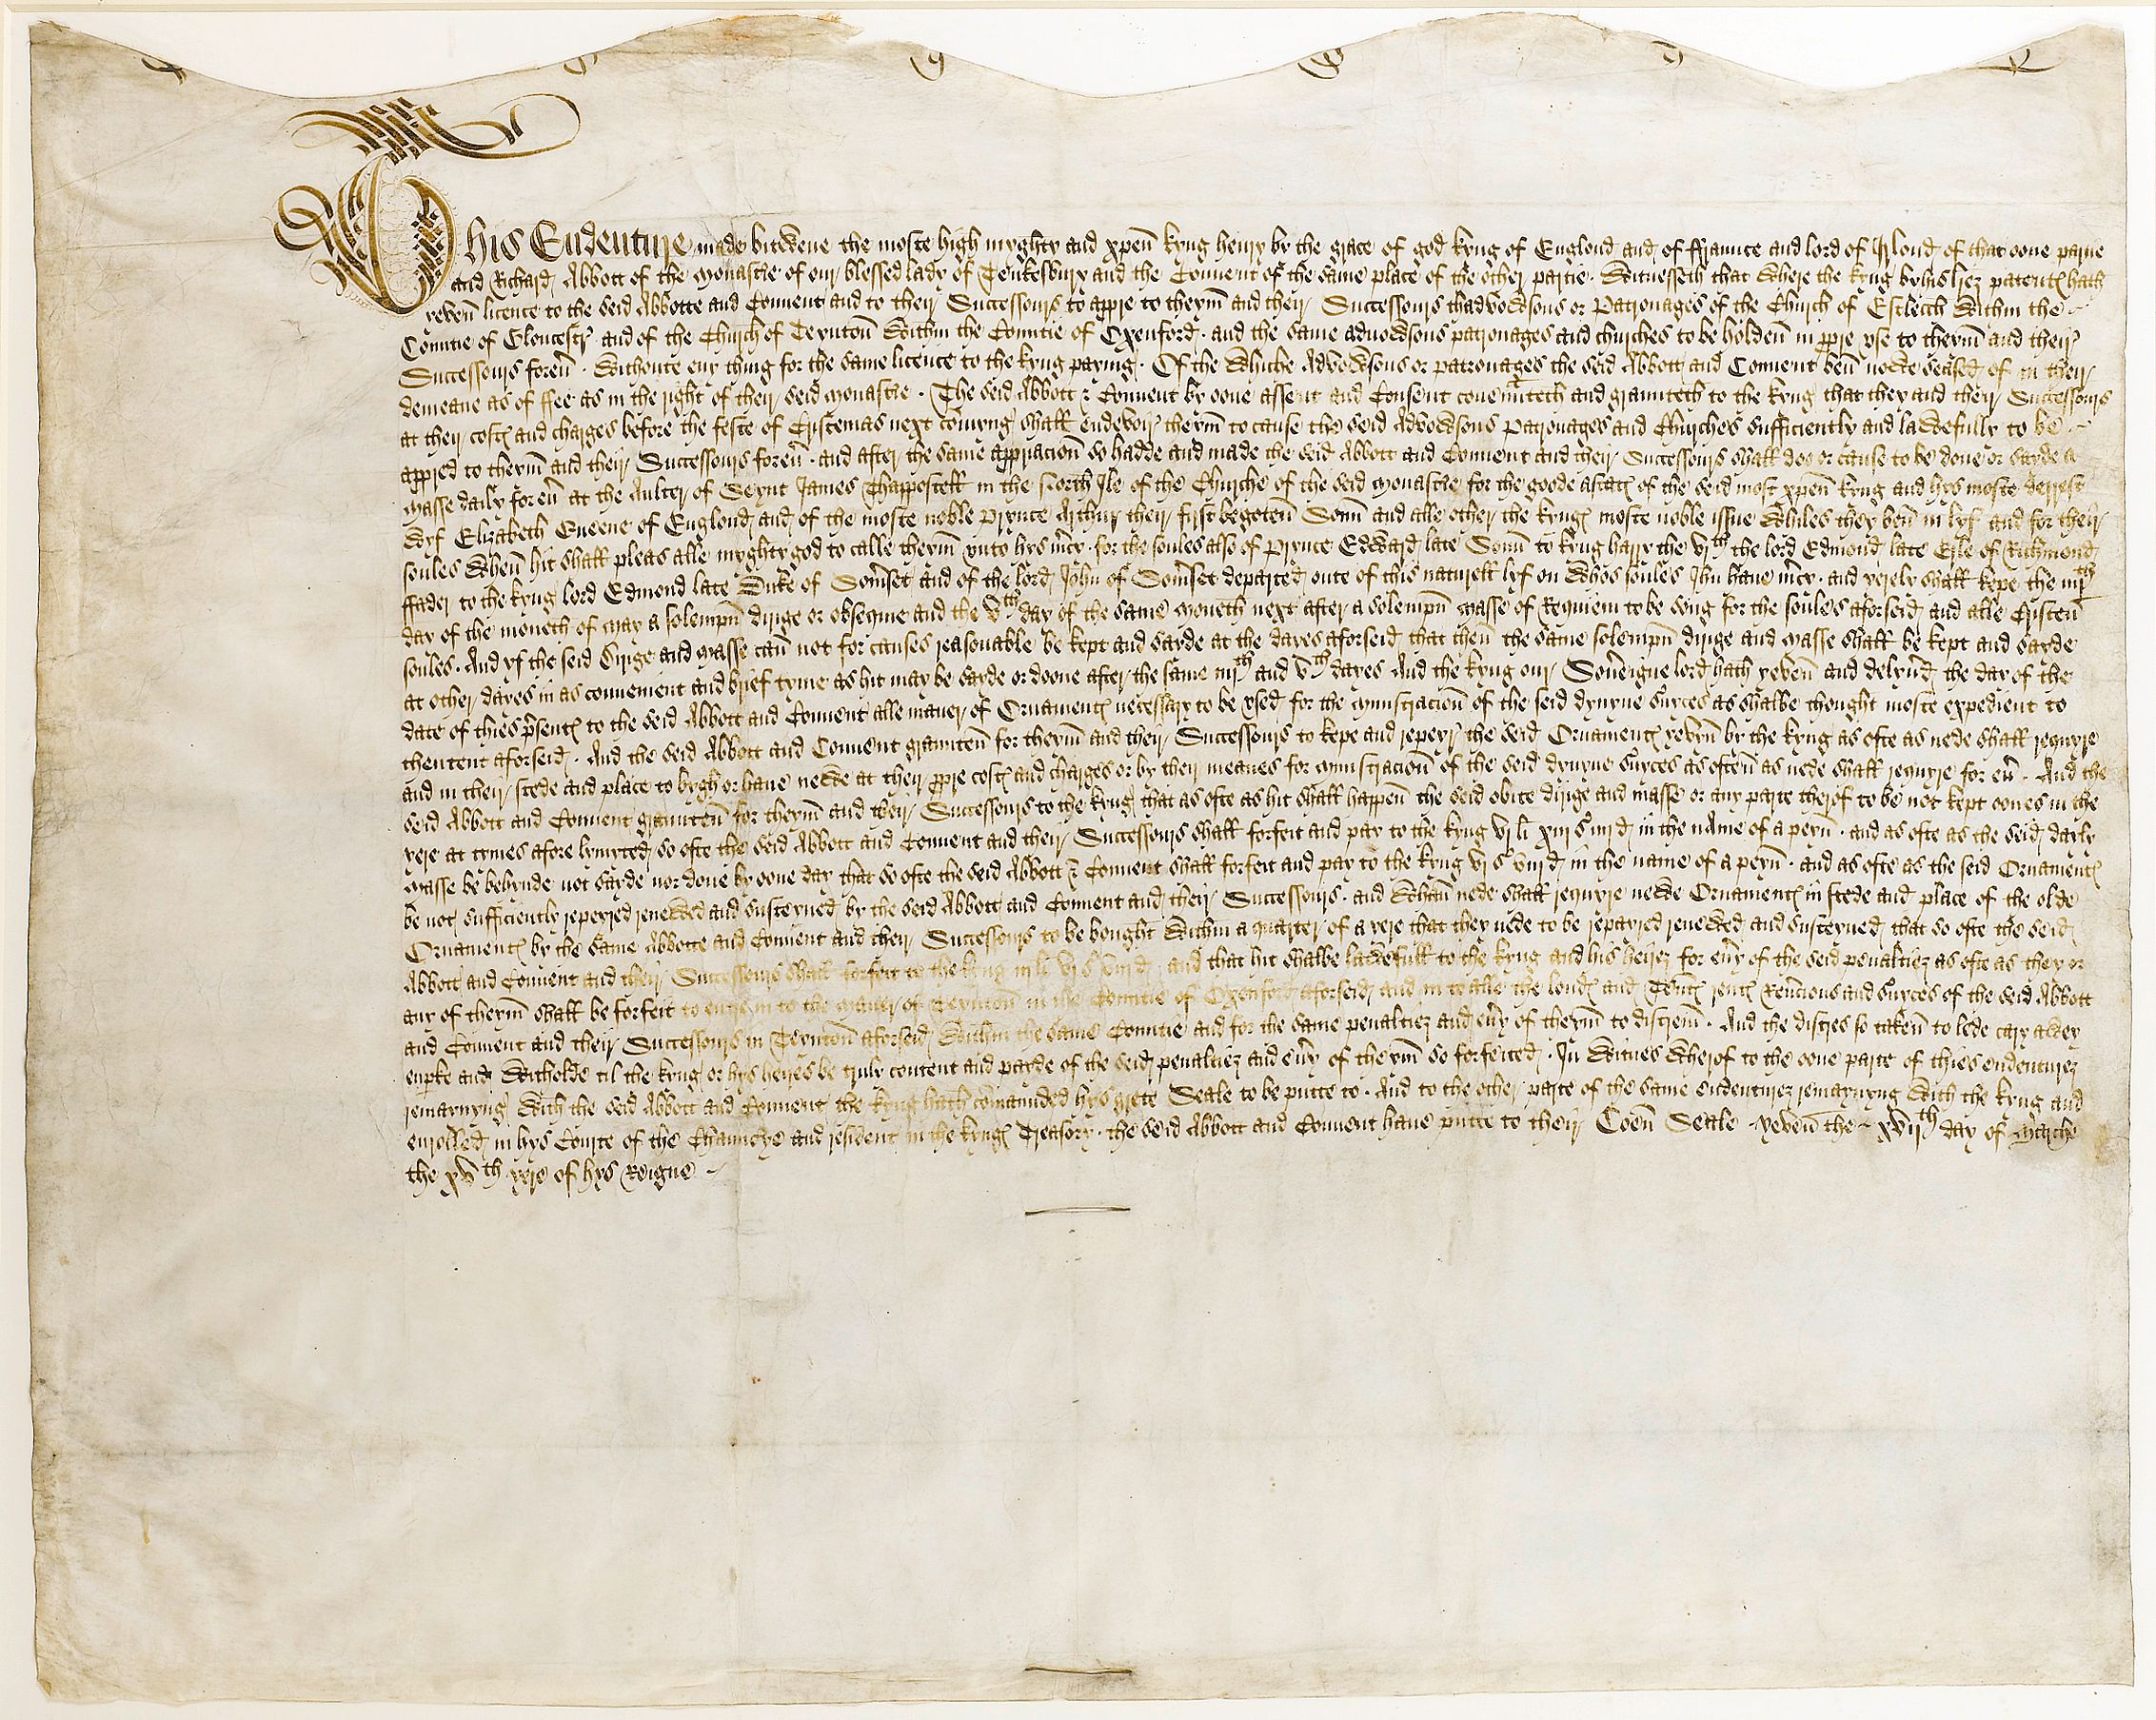 This Endenture made bitwene the moste high myghty and xpen kyng henry by the grace of god kyng of Englond and of ffraunce and lord of Irlond of that oone partie
and Richard Abbott of the Monastie of our blessed lady of Teukesbury and the Convent of the same place of the other partie . Witnesseth that where the kyng by his lrez patentz hath
yeven licence to the seid Abbotte and Convent and to their Successours to appre to theym and their Successours thadvowsons or Patronages of the Church of Estleich within the
Countie of Gloucestr and of the Church of Teynton within the Countie of Oxenford . and the same advowsons patronages and churches to be holden in ppre use to theym and their
Successours forev . withoute eny thing for the same licence to the kyng paying . Of the whiche Advowsons or patronages the seid Abbott and Convent ben nowe seased of in their
demeane as of ffee as in the right of their seid monastie . The seid Abbott & Convent by oone assent and Consent covenuteth and graunteth to the kyng that they and their Successours
at their costz and charges before the feste of Cristemas next comyng shall endevoir theym to cause the seid Advowsons Patronages and Churches sufficiently and lawefully to be
appred to theym and their Successours forev . and after the same appriacion so hadde and made the seid Abbott and Convent and their Successours shall doo or cause to be done or sayde a
Masse daily for ev at the Aulter of Seynt James Thappostell in the North Ile of the Churche of the seid Monastie for the goode astatz of the seid most xpen kyng and hys moste derrest
wyf Elizabeth Queene of Englond and of the moste noble Prynce Arthur their first begoten Sonn and alle other the kyngz moste noble issue whiles they ben in lyf and for their
soules when hit shall pleas alle myghty god to calle theym unto hys mcy . for the soules also of Prynce Edward late Sonn to kyng harry the vjth the lord Edmond late Erle of Richmond
ffader to the kyng lord Edmond late Duke of Somset and of the lord John of Somset departed oute of this naturell lyf on whos soules Jhu have mcy . and yerely shall kepe the iiijth
day of the moneth of may a solempn dirige or obsequie and the vth day of the same moneth next after a solempn masse of Requiem to be song for the soules aforseid and alle Cristen
soules . And yf the seid Dirige and masse can not for causes reasonable be kept and sayde at the dayes aforseid that then the same solempn dirige and masse shall be kept and sayde
at other dayes in as convenient and brief tyme as hit may be sayde or doone after the same iiijth and vth dayes And the kyng our Soveigne lord hath yeven and delyvd the day of the
date of thies psentz to the seid Abbott and Convent alle maner of Ornamentz necessary to be used for the mynistracion of the seid dyvyne svyces as shalbe thought moste expedient to
thentent aforseid . And the seid Abbott and Convent graunten for theym and their Successours to kepe and repeyr the seid Ornamentz yevyn by the kyng as ofte as nede shall requyre
and in their stede and place to bygh or have newe at their ppre costz and charges or by their meanes for mynistracion of the seid dyvyne svyces as often as nede shall requyre for ev . And the
seid Abbott and Convent graunten for theym and their Successours to the kyng that as ofte as hit shall happen the seid obite dirige and masse or any parte therof to be not kept oones in the
yere at tymes afore lymyted so ofte the seid Abbott and Convent and their Successours shall forfeit and pay to the kyng vj li xiij s iiij d in the name of a peyn . and as ofte as the seid dayly
masse be behynde not sayde nor done by oone day that so ofte the seid Abbott & Convent shall forfeit and pay to the kyng vj s viij d in the name of a peyn . and as ofte as the seid Ornamentz
be not sufficiently repeyred renewed and susteyned by the seid Abbott and Convent and their Successours . and whan nede shall requyre newe Ornamentz in stede and place of the olde
Ornamentz by the same Abbotte and Convent and their Successours to be bought within a quarter of a yere that they nede to be repayred renewed and susteyned that so ofte the seid
Abbott and Convent and their Successours shall forfeit to the kyng iij li vj s viij d . and that hit shalbe lawefull to the kyng and his heirez for evy of the seid penaltiez as ofte as they or
any of theym shall be forfeit to entre in to the maner of Teynton in the Countie of Oxenford aforseid and in to alle the londz and Tentz rentz revcions and svyces of the seid Abbott
and Convent and their Successours in Teynton aforseid within the same Countie and for the same penaltiez and evy of theym to distreyn . And the distres so taken to lede cary awey
enparke and witholde til the kyng or hys heires be truly content and payde of the seid penaltiez and evy of theym so forfeited . In witnes wherof to the oone parte of thies endenturez
remaynyng with the seid Abbott and Convent the kyng hath comaunded hys grete Seale to be putte to . And to the other parte of the same endenturez remaynyng with the kyng and
enrolled in hys Courte of the Chauncerye and resident in the kyngz Treasory . the seid Abbott and Convent have putte to their Coen Seale . yeven the xviijth day of Marche
the xvth yere of hys Reigne .